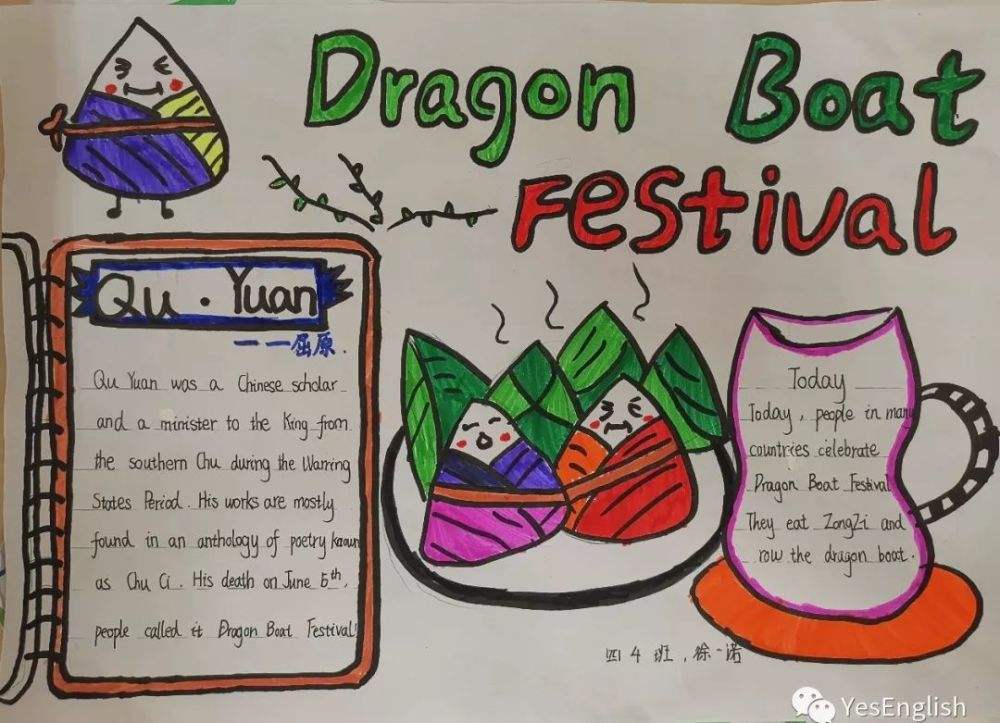 Dragon Boat
Festival
Qu · Yuan
——屈原.
Qu Yuan was a Chinese scholar
and a minister to the King from
the southern Chu during the Warring
States Period. His works are mostly
found in an anthology of poetry known
as Chu Ci. His death on June 5th,
people called it Dragon Boat Festival!
Today
Today, people in many
countries celebrate
Dragon Boat Festival
They eat ZongZi and
row the dragon boat.
四4班,徐一诺
YesEnglish